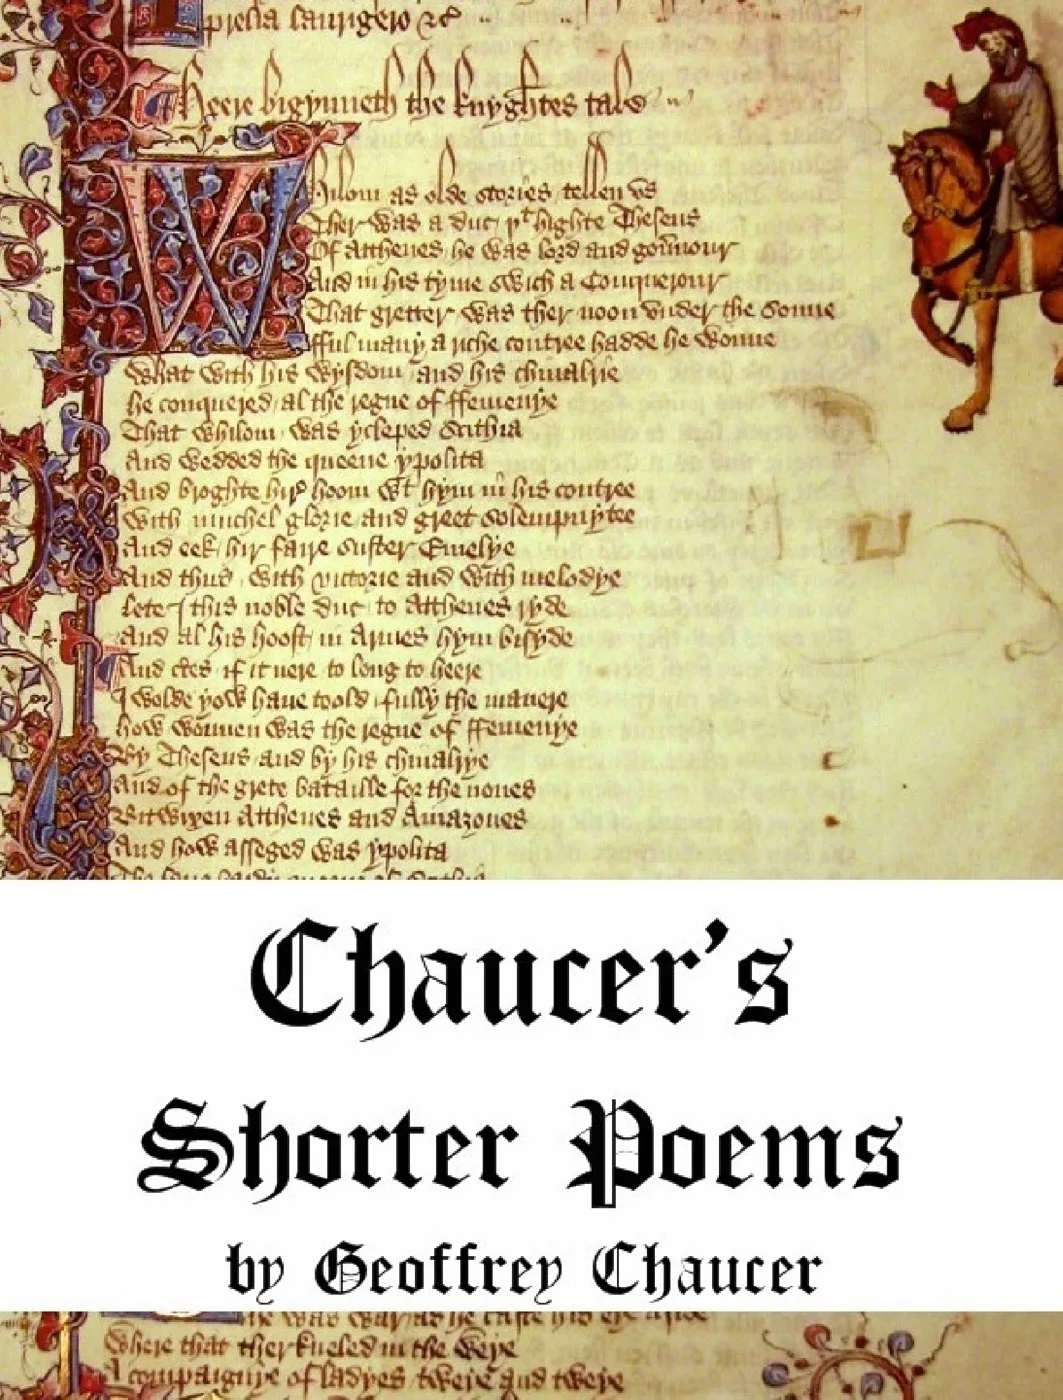 presta laurigero &c
Heere bigynneth the knyghtes tale
Whilom as olde stories tellen us
Ther was a duc þt highte Theseus
Of Atthenes he was lord and gouernour
And in his tyme swich a Conquerour
That gretter was ther noon vnder the Sonne
fful many a riche contree hadde he wonne
What with his wysdom and his chiualrie
he conquered al the regne of ffemenye
That whilom was ycleped Scithia
And wedded the queene ypolita
And broghte hir hoom wt hym in his contree
With muchel glorie and greet solempnytee
And eek hir faire suster Emelye
And thus with victorie and with melodye
lete I this noble duc to Atthenes ryde
And al his hoost in Armes hym bisyde
And certes if it nere to long to heere
I wolde yow haue toold fully the manere
how wonnen was the regne of ffemenye
By Theseus and by his chiualrye
And of the grete bataille for the nones
Bitwixen Atthenes and Amazones
And how asseged was ypolita
Chaucer's
Shorter Poems
by Geoffrey Chaucer
he was war as he caste his eye aside
Where that ther kneled in the weye
A compaignye of ladyes tweye and tweye